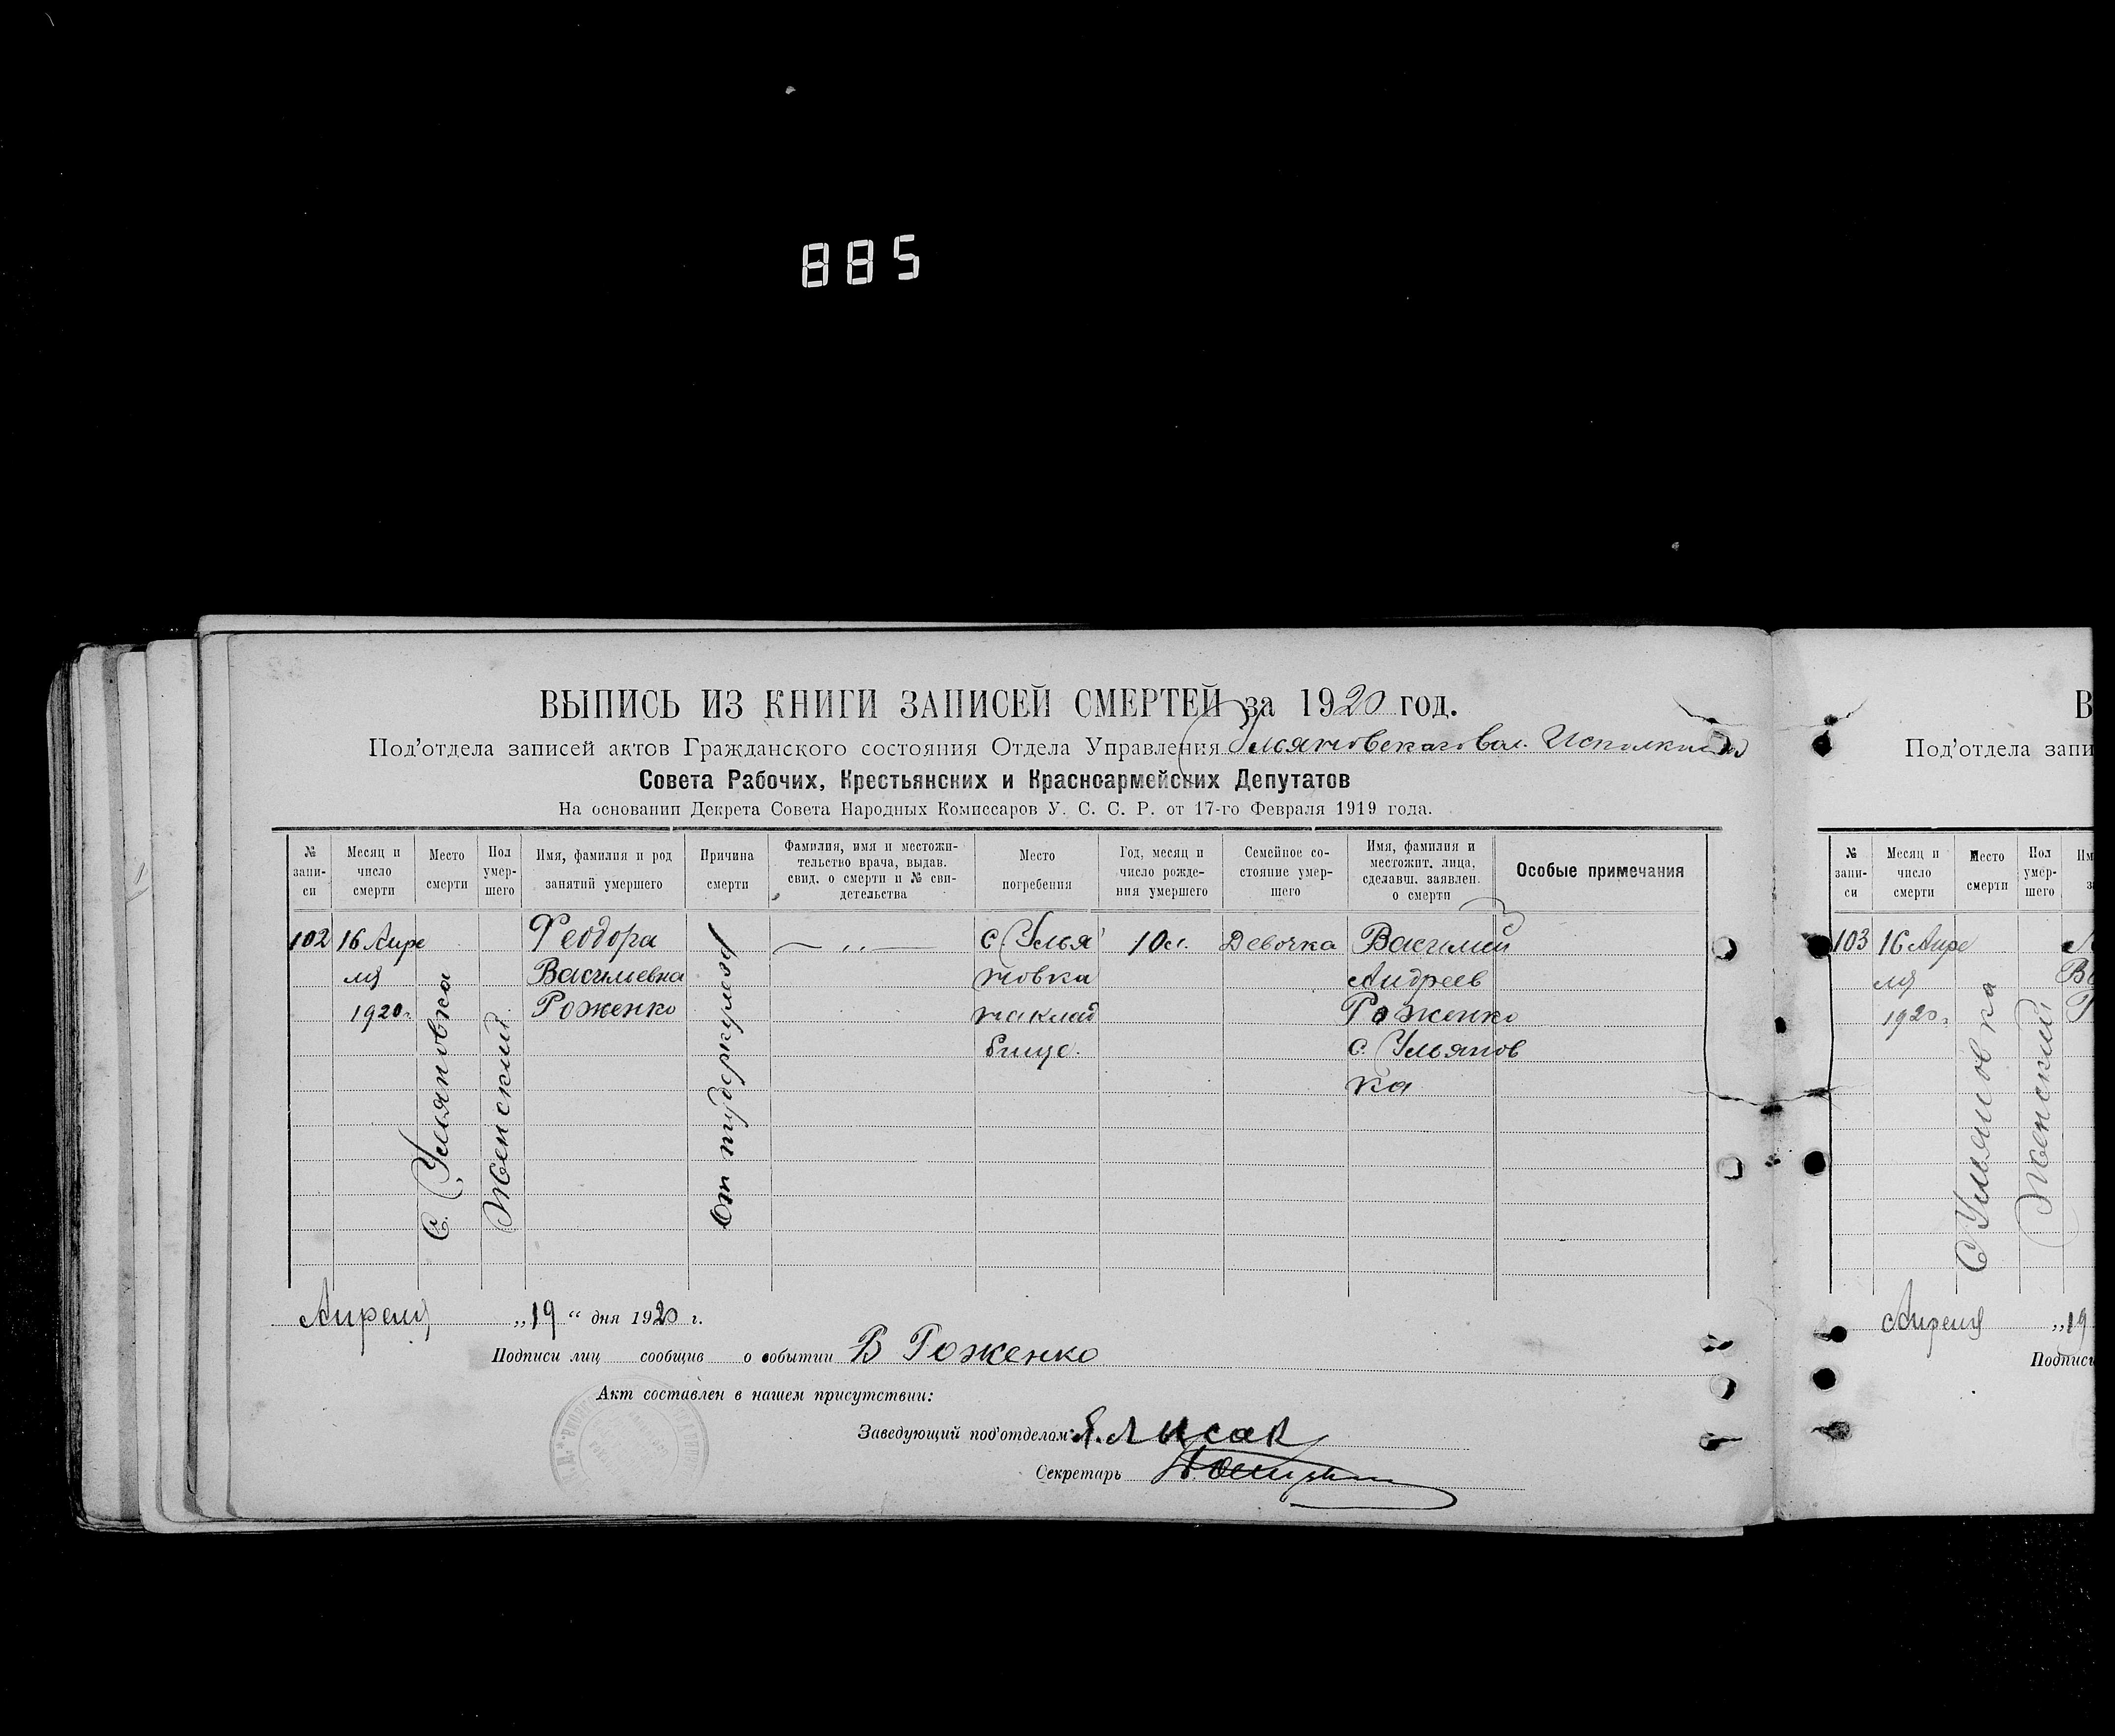 885
ВЫПИСЬ ИЗ КНИГИ ЗАПИСЕЙ СМЕРТЕЙ за 1920 год.
Под'отдела записей актов Гражданского состояния Отдела Управления Ульяновскаго Вол. Исполкома
Совета Рабочих, Крестьянских и Красноармейских Депутатов
На основании Декрета Совета Народных Комиссаров У. С. С. Р. от 17-го Февраля 1919 года.
№ запи-си
Месяц и число смерти
Место смерти
Пол умер-шего
Имя, фамилия и род занятий умершего
Причина смерти
Фамилия, имя и местожи-тельство врача, выдав. свид. о смерти и № сви-детельства
Место погребения
Год, месяц и число рожде-ния умершего
Семейное со-стояние умер-шего
Имя, фамилия и местожит. лица, сделавш. заявлен. о смерти
Особые примечания
102
16 Апре
ля
1920г.
С. Уляновка
Женский
Феодора
Васильевна
Роженко
От туберкулеза
— „ —
с Улья
новка
на клад
бище.
10 л.
Девочка
Василий
Андреев
Роженко
с. Ульянов
ка
Апреля „19“ дня 1920 г.
Подписи лиц сообщив о событии В Роженко
Акт составлен в нашем присутствии:
Заведующий под'отделом Я. Лысак
Секретарь
В
Под'отдела запи
№ запи-си
Месяц и число смерти
Место смерти
Пол умер-шего
103
16 Апре
ля
1920г
С Уляновка
Женский
Апреля „19
Подписи